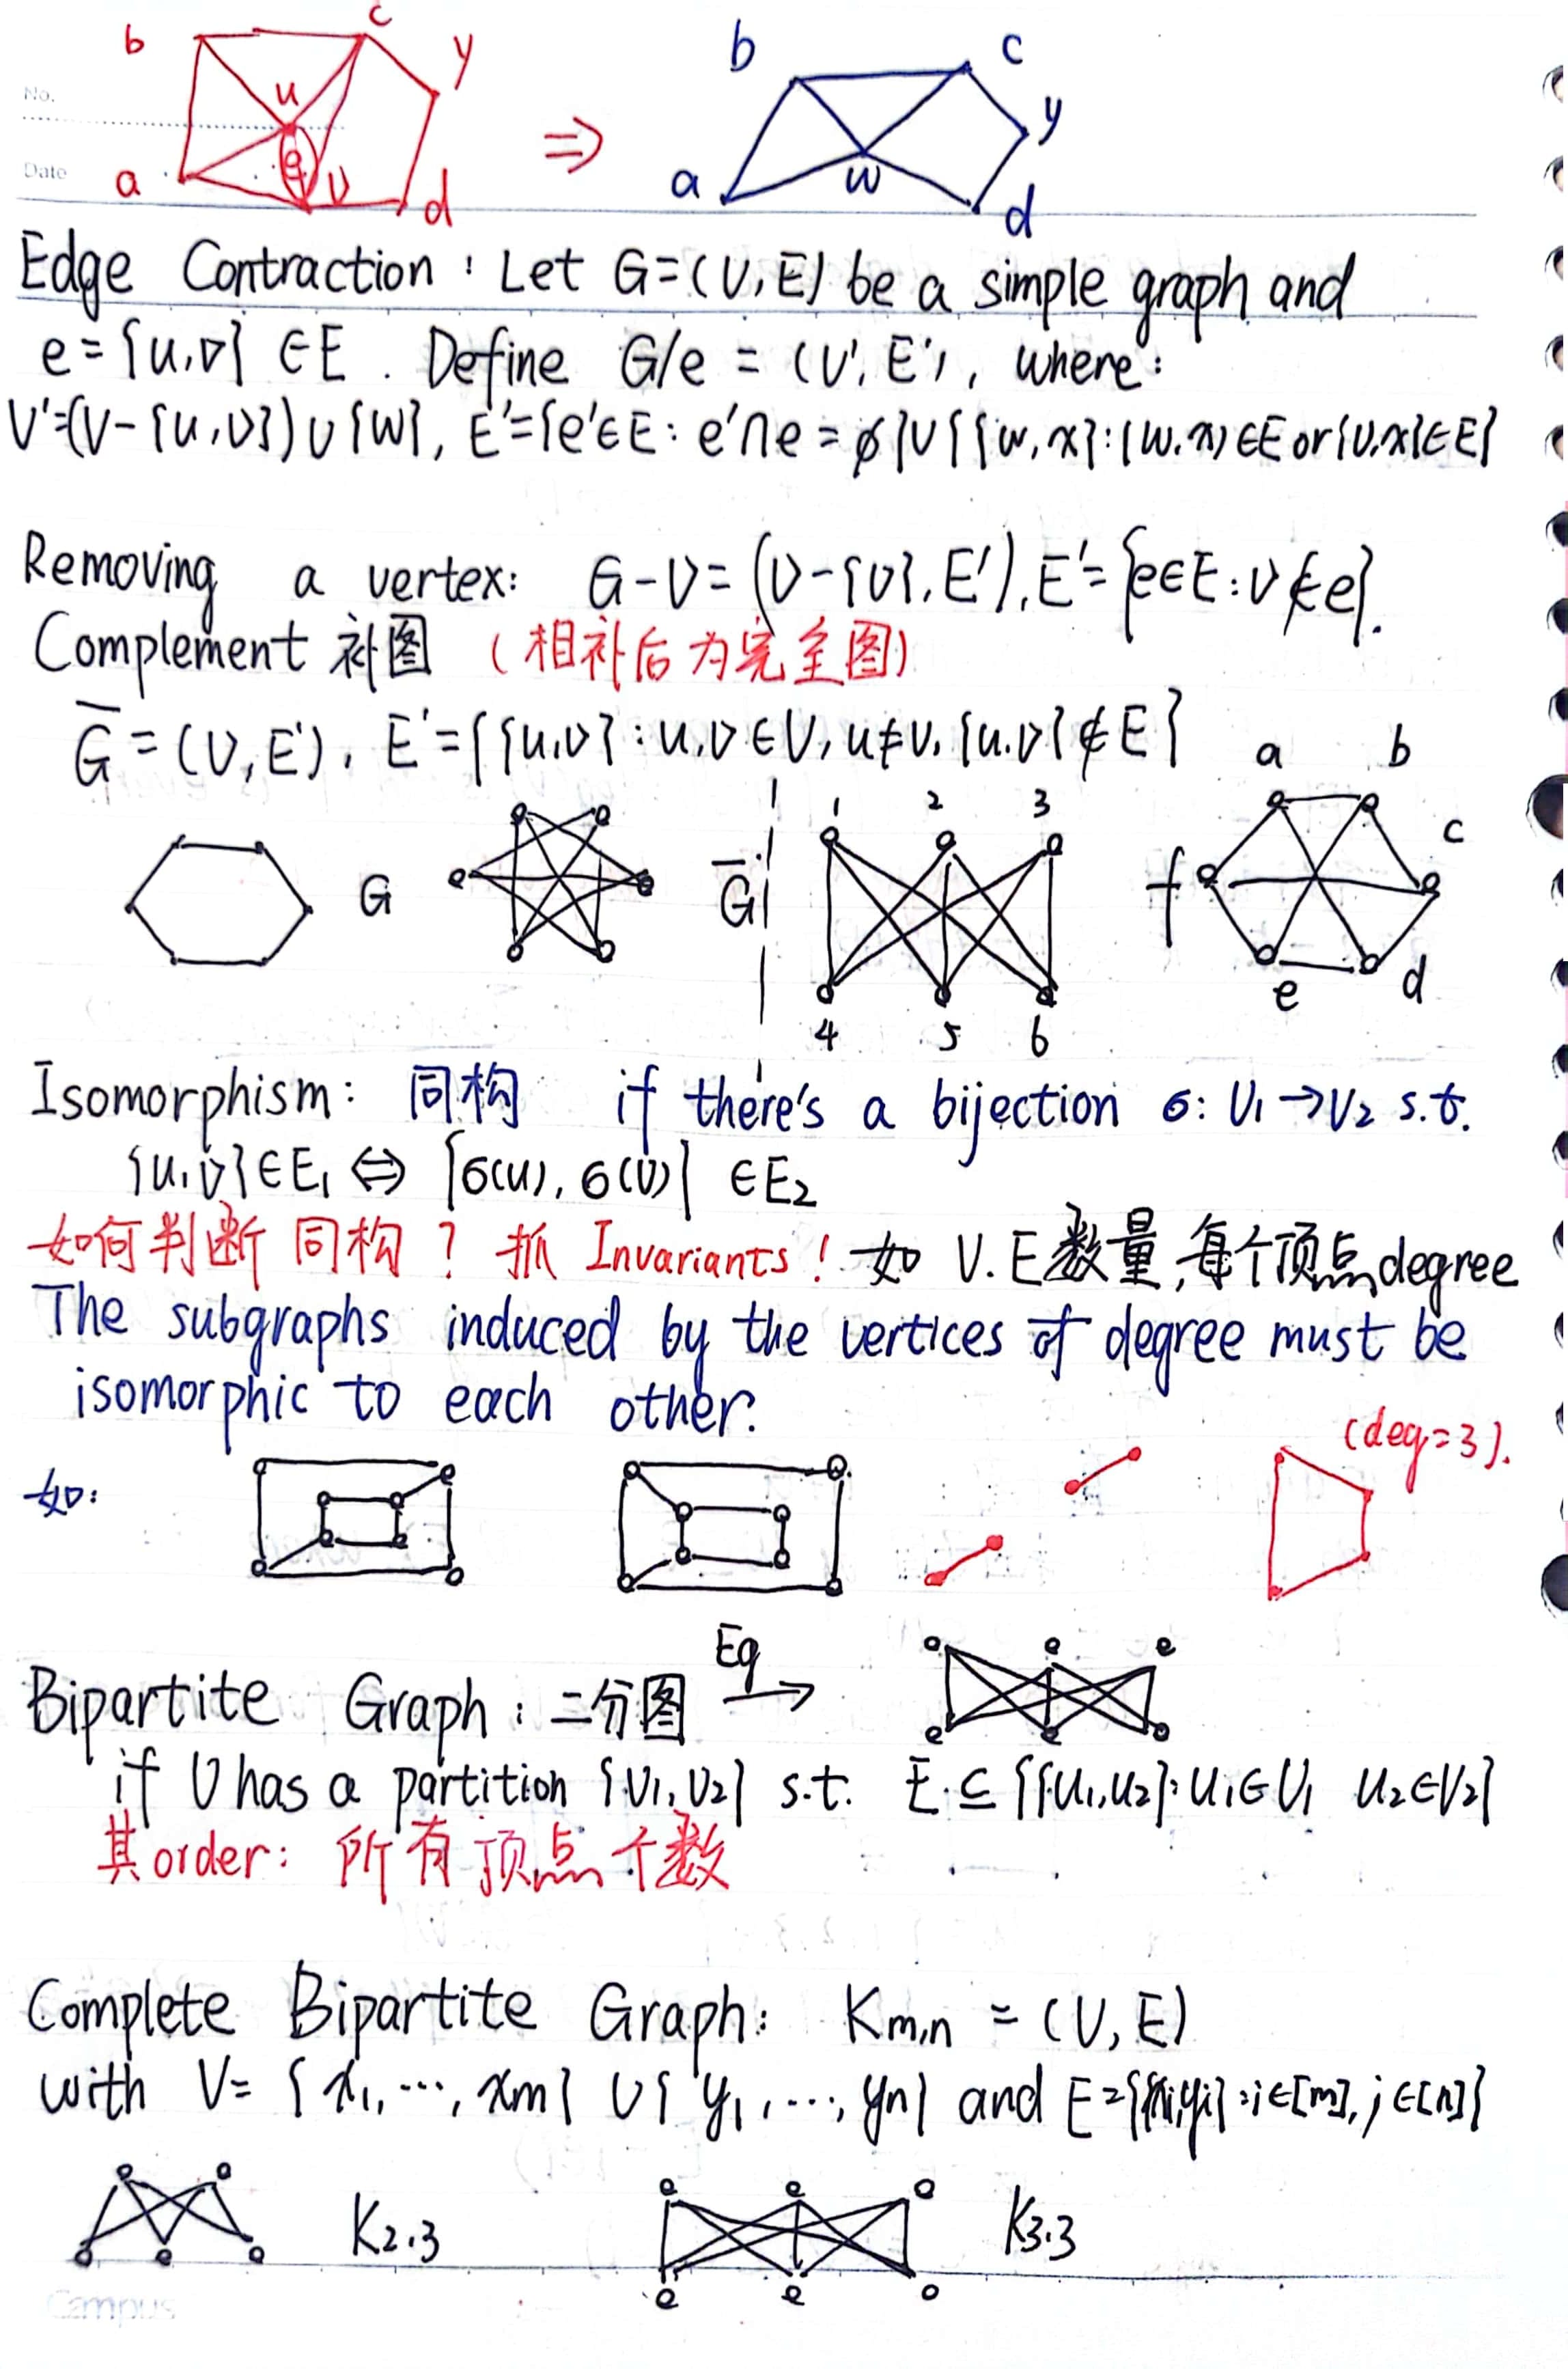 b c y
u
e
a v d
⇒
b c y
a w d
No.
Date
Edge Contraction : Let G=(V,E) be a simple graph and
e={u,v} ∈E . Define G/e = (V',E'), where:
V'=(V-{u,v})∪{w}, E'={e'∈E: e'∩e=∅}∪{{w,x}:{w,x}∈E or {v,x}∈E}
Removing a vertex: G-v=(V-{v},E'),E'={e∈E:v∉e}.
Complement 补图 (相补后为完全图)
G̅=(V,E'), E'={{u,v}:u,v∈V,u≠v,{u,v}∉E}
G G̅
1 2 3
4 5 6
a b
f c
e d
Isomorphism: 同构 if there's a bijection σ: V₁→V₂ s.t.
{u,v}∈E₁ ⇔ {σ(u),σ(v)} ∈E₂
如何判断同构? 抓 Invariants! 如 V.E数量,每个顶点degree
The subgraphs induced by the vertices of degree must be
isomorphic to each other.
如:
(deg=3).
Bipartite Graph: 二分图 Eg →
if V has a partition {V₁,V₂} s.t. E⊆{{u₁,u₂}:u₁∈V₁ u₂∈V₂}
其order: 所有顶点个数
Complete Bipartite Graph: Km,n = (V,E)
with V={x₁,⋯,xm}∪{y₁,⋯,yn} and E={{xi,yi}:i∈[m],j∈[n]}
K2.3 K3.3
Campus